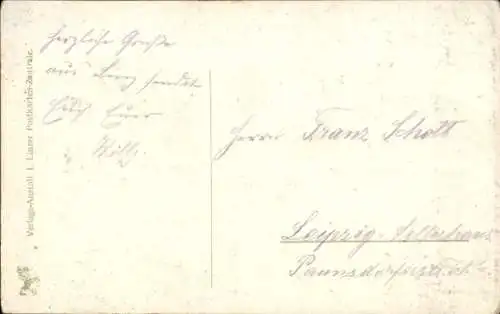 Herzliche Grüße
aus Berg sendet
Euch Euer
Willy.
Herrn Franz Schott
Leipzig-Sellerhaus.
Paunsdorferstr.
Verlags-Anstalt I. Linzer Postkarten-Zentrale.